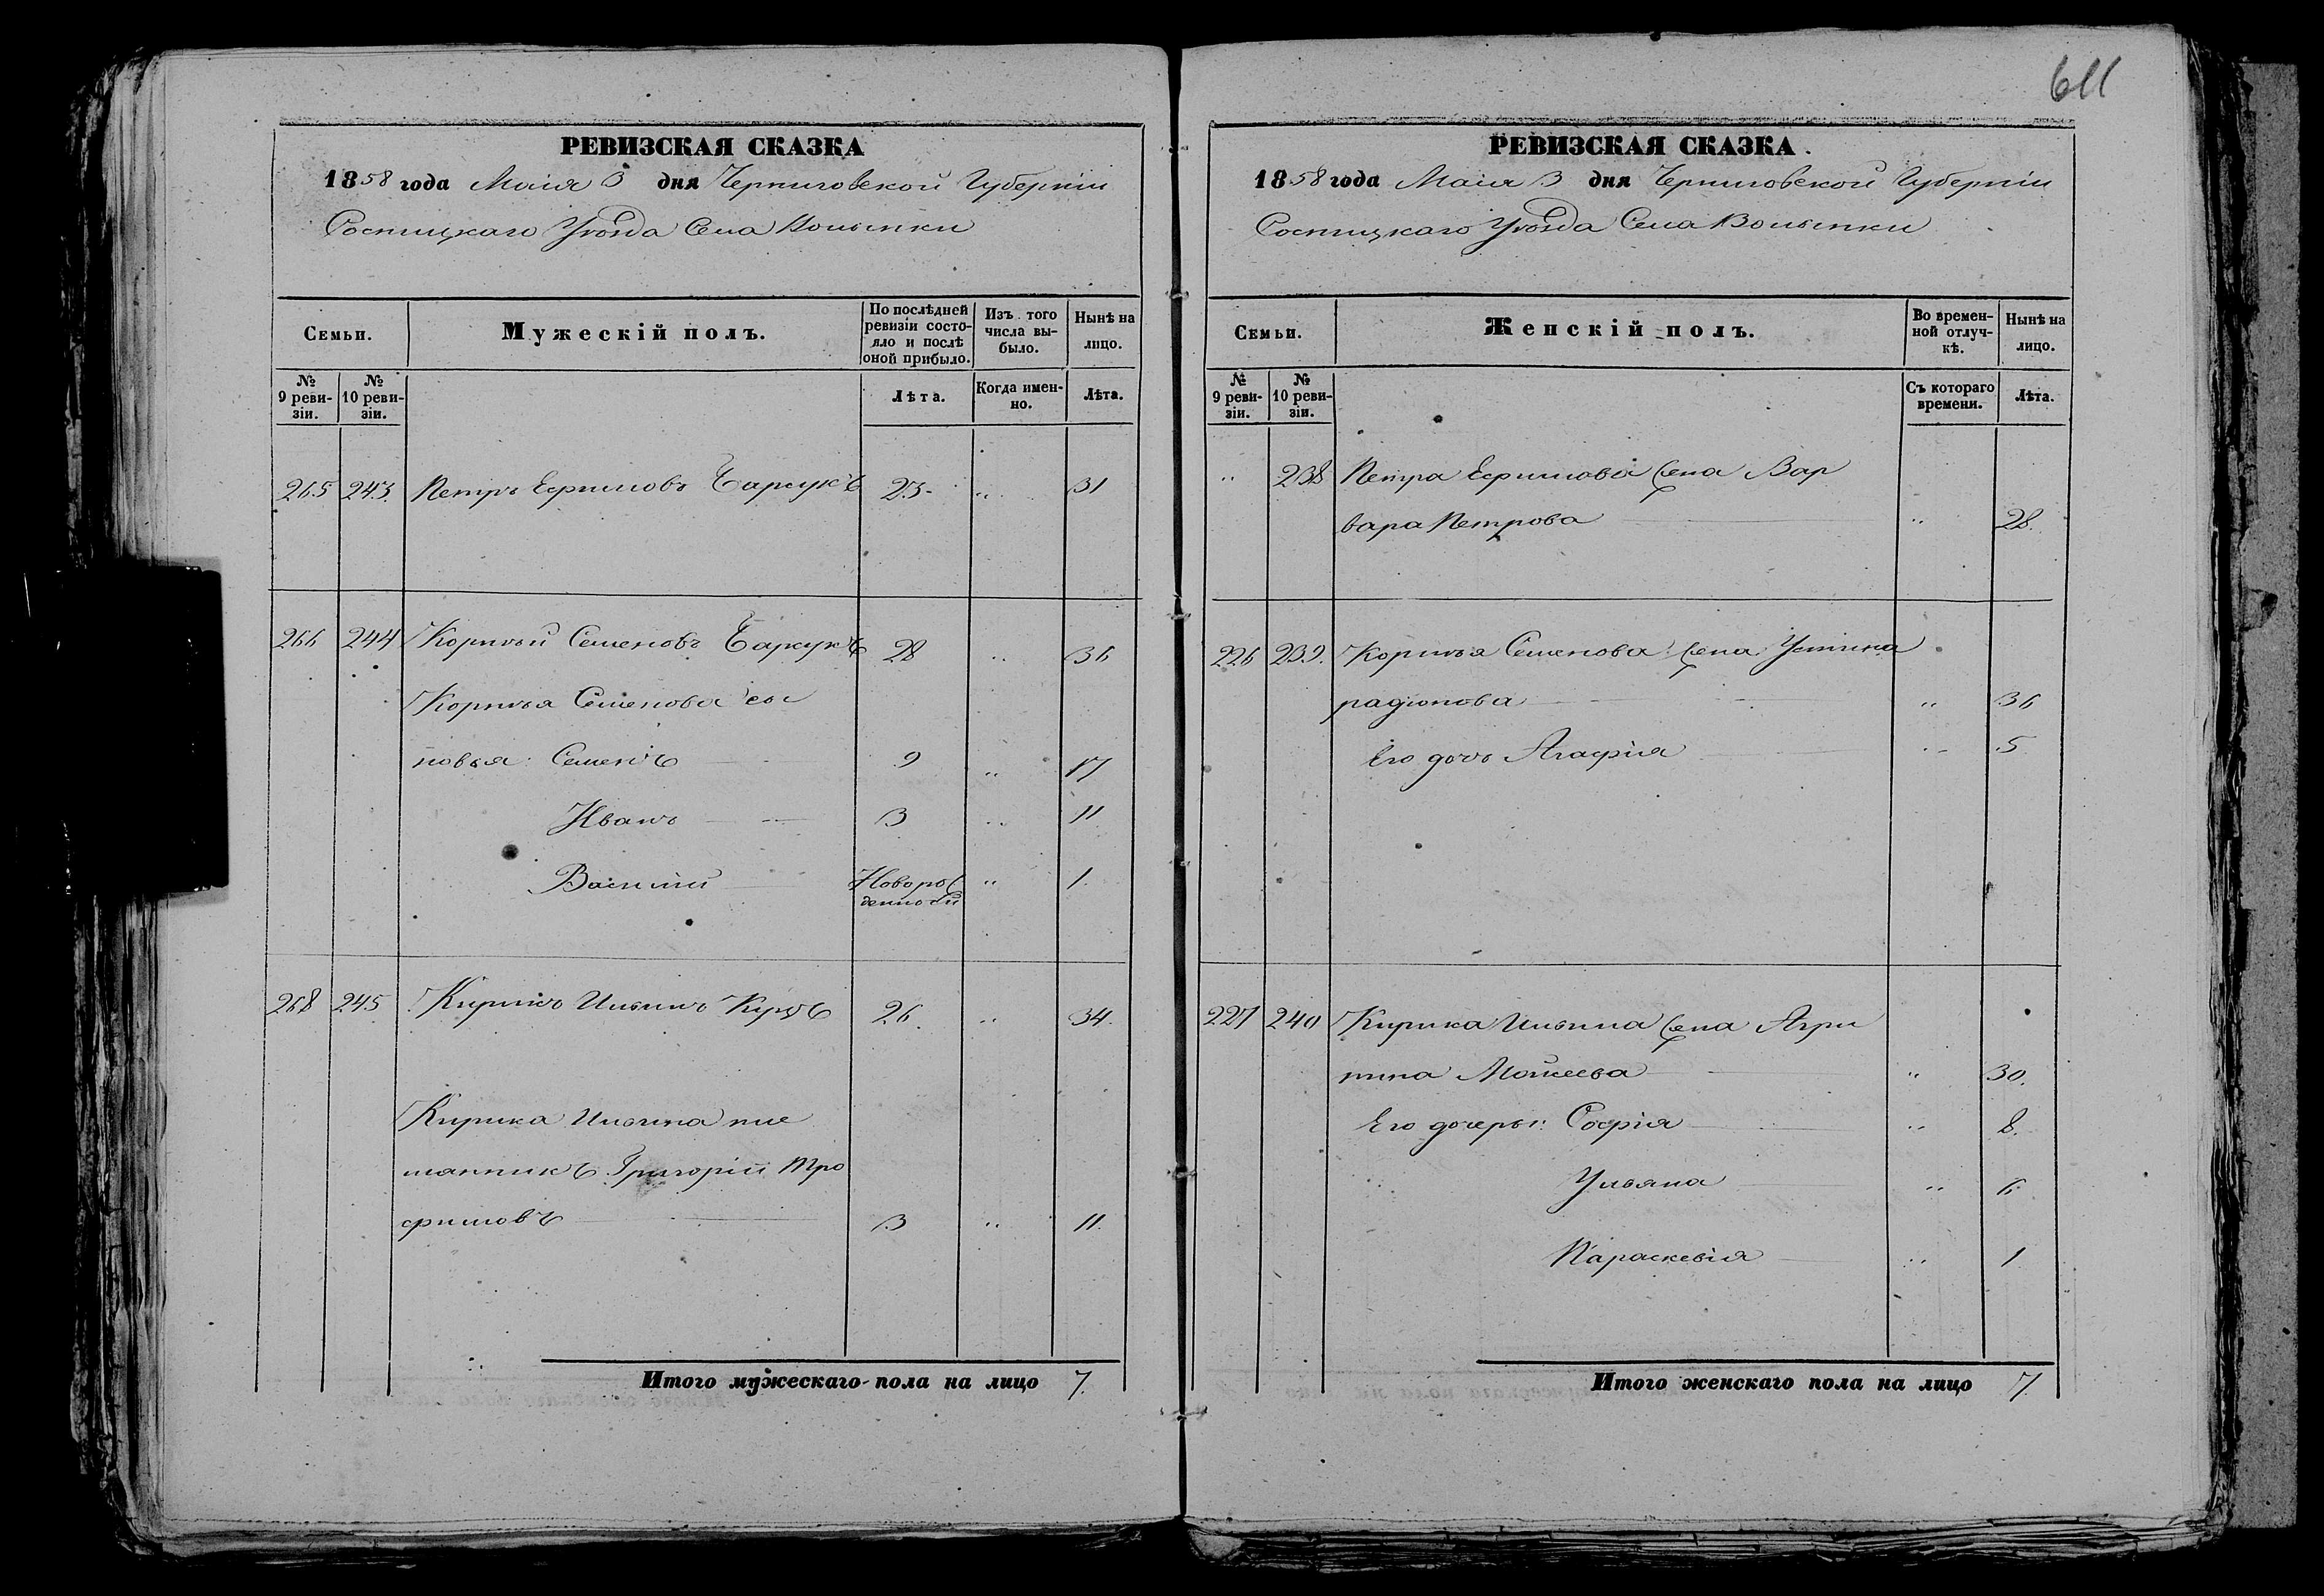 611
РЕВИЗСКАЯ СКАЗКА
1858 года Маія 3 дня Черниговской Губерніи
Сосницкаго Уѣзда Села Волынки
Семьи.
Мужескій полъ.
По послѣдней ревизіи состояло и послѣ оной прибыло.
Изъ того числа выбыло.
Нынѣ на лицо.
№ 9 ревизіи.
№ 10 ревизіи.
Лѣта.
Когда именно.
Лѣта.
265 243 Петръ Ефимовъ Барсукъ 23 " 31
266 244 Корнѣй Семеновъ Барсукъ 28 " 36
Корнѣя Семенова сы
новья: Семенъ 9 " 17
Иванъ 3 " 11
Василий Новорож " 1
денной
268 245 Кирикъ Ильинъ 26 " 34
Кирика Ильина пле
мянникъ Григорій Тро
фимовъ 3 " 11
Итого мужескаго пола на лицо 7
РЕВИЗСКАЯ СКАЗКА
1858 года Маія 3 дня Черниговской Губерніи
Сосницкаго Уѣзда Села Волынки
Семьи.
Женскій полъ.
Во временной отлучкѣ.
Нынѣ на лицо.
№ 9 ревизіи.
№ 10 ревизіи.
Съ котораго времени.
Лѣта.
" 238 Петра Ефимова жена Вар
вара Петрова " 28
226 239 Корнѣя Семенова жена Устина
радіонова " 36
Его дочь Агафія " 5
227 240 Кирика Ильина жена Агри
пина Мойсеева " 30
Его дочеры: Софія " 8
Ульяна " 6
Параскевія " 1
Итого женскаго пола на лицо 7